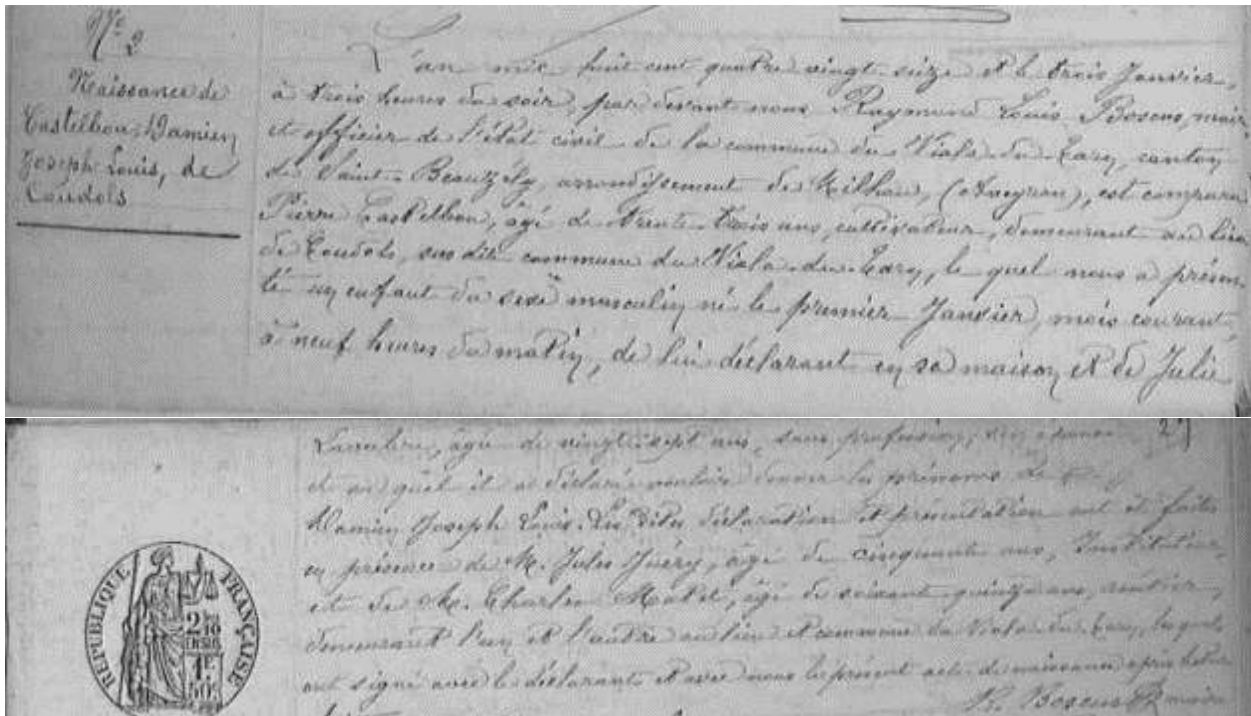 N° 2
Naissance de
Castelbou Damien
Joseph Louis, de
Coudols
L'an mil huit cent quatre vingt seize et le trois Janvier,
à trois heures du soir, par devant nous Raymond Louis Boscus, maire
et officier de l'état civil de la commune du Viala du Tarn, canton
de Saint-Beauzély, arrondissement de Milhau, (Aveyron), est comparu
Pierre Castelbou, âgé de trente trois ans, cultivateur, demeurant au lieu
de Coudols, susdite commune du Viala-du-Tarn, le quel nous a présen
té un enfant du sexe masculin né le premier Janvier, mois courant,
à neuf heures du matin, de lui déclarant en sa maison et de Julie
âgée de vingt sept ans, sans profession, son épouse
et au quel il a déclaré vouloir donner les prénoms de
Damien Joseph Louis. Les dites déclaration et présentation ont été faites
en présence de M. Jules âgé de cinquante ans, Instituteur,
et de M. Charles âgé de soixante quinze ans, rentier,
demeurant l'un et l'autre au lieu et commune du Viala du Tarn, lesquels
ont signé avec le déclarant et avec nous le présent acte de naissance après lecture
Boscus maire
RÉPUBLIQUE FRANÇAISE